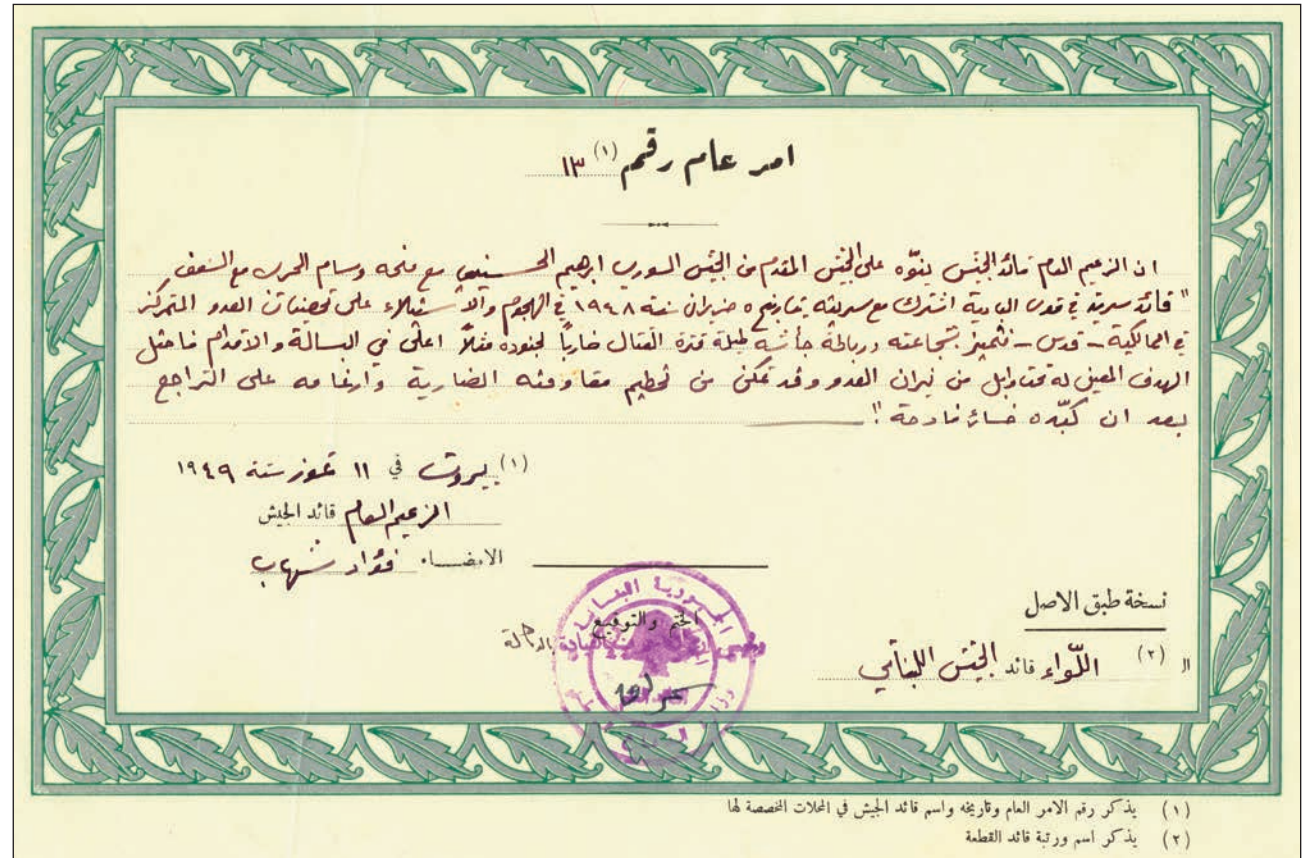 امر عام رقم (١) ١٣
ان الزعيم العام قائد الجيش ينوّه على الجيش المقدم من الجيش السوري ابرهيم الحسيني مع منحه وسام الحرب مع السعف
"قائد سرية في قوى البادية اشترك مع سريته بتاريخ ٥ حزيران سنة ١٩٤٨ في الهجوم والاستيلاء على تحصينات العدو المتمركز
في المالكية - قدس - فتميز بشجاعته ورباطة جأشه طيلة فترة القتال ضارباً لجنوده مثلاً اعلى في البسالة والاقدام فاحتل
الهدف المعين له تحت وابل من نيران العدو وقد تمكن من تحطيم مقاومته الضارية وارغامه على التراجع
بعد ان كبّده خسائر فادحة"
(١) بيروت في ١١ تموز سنة ١٩٤٩
الزعيم العام قائد الجيش
الامضاء فؤاد شهاب
نسخة طبق الاصل
ال (٢) اللّواء قائد الجيش اللبناني
الختم والتوقيع
بالوكالة
(١) يذكر رقم الامر العام وتاريخه واسم قائد الجيش في المحلات المخصصة لها
(٢) يذكر اسم ورتبة قائد القطعة